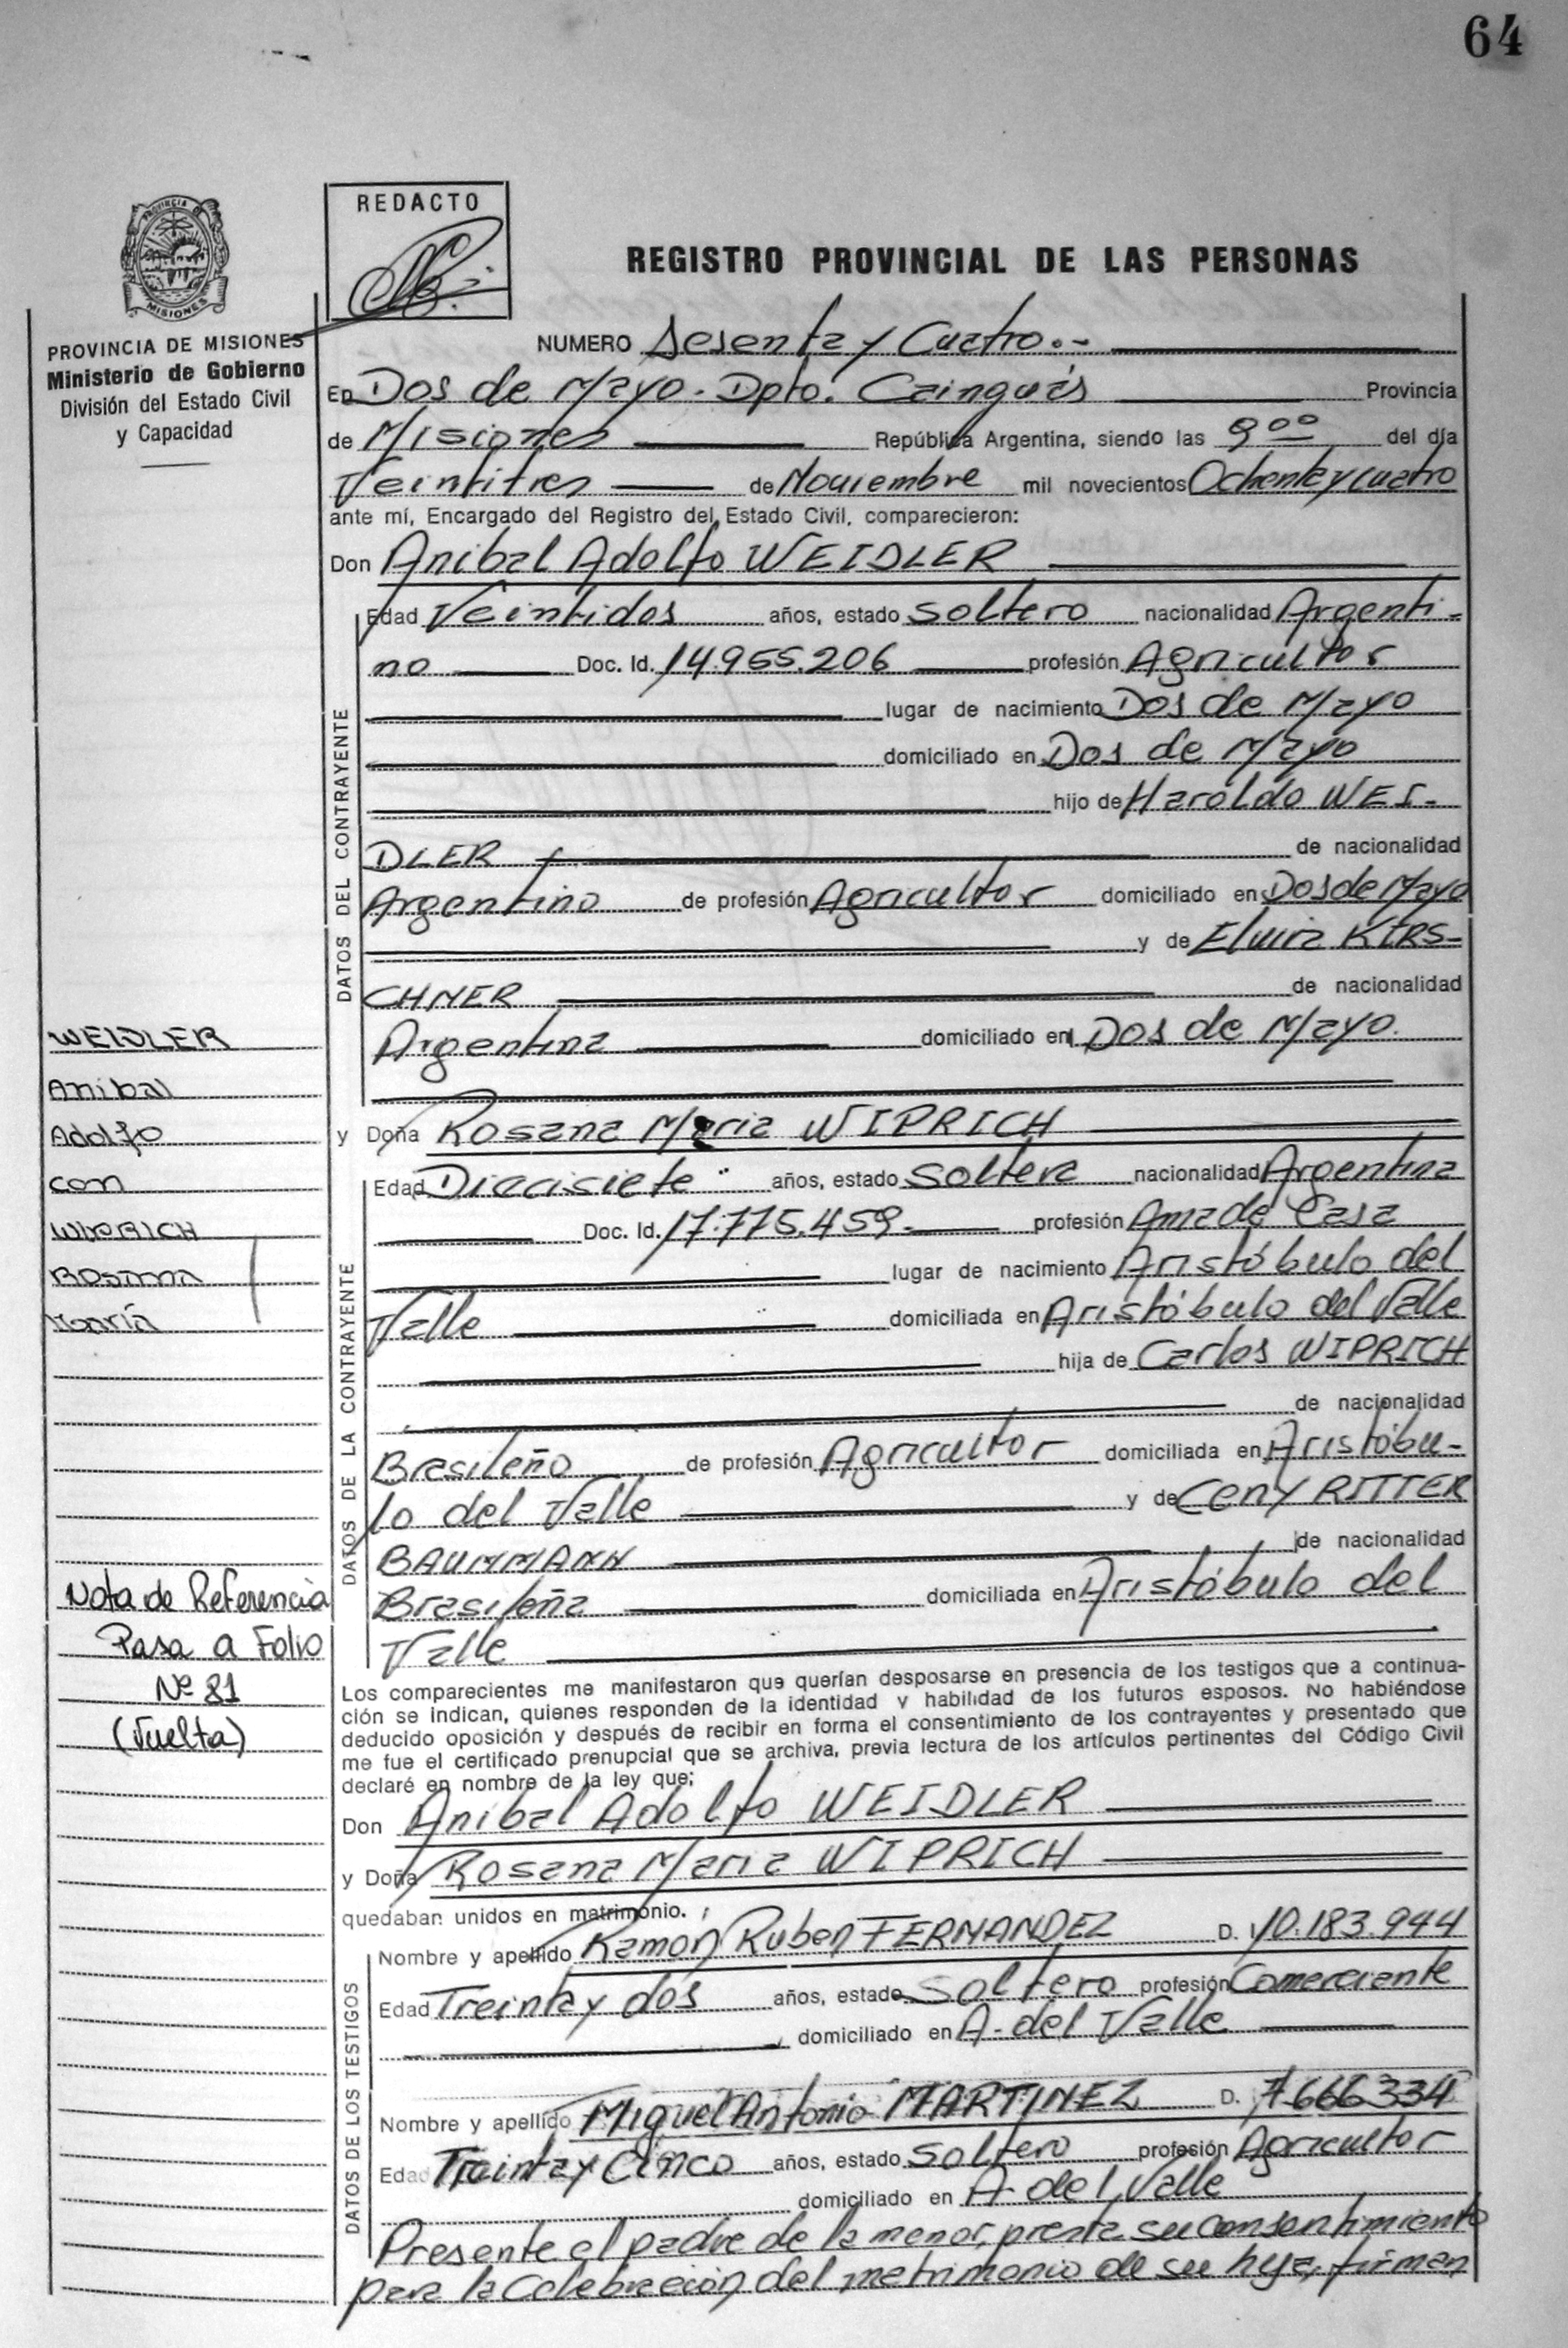 64
REDACTO
REGISTRO PROVINCIAL DE LAS PERSONAS
PROVINCIA
MISIONES
PROVINCIA DE MISIONES
Ministerio de Gobierno
División del Estado Civil
y Capacidad
NUMERO Sesenta y Cuatro.-
En Dos de Mayo. Dpto. Cainguás Provincia
de Misiones República Argentina, siendo las 9 00 del día
Veintitres de Noviembre mil novecientos Ochenta y cuatro
ante mí, Encargado del Registro del Estado Civil, comparecieron:
Don Anibal Adolfo WEIDLER
DATOS DEL CONTRAYENTE
Edad Veintidos años, estado soltero nacionalidad Argenti-
no Doc. Id. 14.955.206 profesión Agricultor
lugar de nacimiento Dos de Mayo
domiciliado en Dos de Mayo
hijo de Haroldo WEI-
DLER de nacionalidad
Argentino de profesión Agricultor domiciliado en Dos de Mayo
y de Elvira KIRS-
CHNER de nacionalidad
Argentina domiciliado en Dos de Mayo.
y Doña Rosana Maria WIPRICH
DATOS DE LA CONTRAYENTE
Edad Diecisiete años, estado soltera nacionalidad Argentina
Doc. Id. 17.775.459.- profesión Ama de Casa
lugar de nacimiento Aristóbulo del
Valle domiciliada en Aristóbulo del Valle
hija de Carlos WIPRICH
de nacionalidad
Brasileño de profesión Agricultor domiciliada en Aristóbu-
lo del Valle y de Ceny RITTER
BAUMMANN de nacionalidad
Brasileña domiciliada en Aristóbulo del
Valle
WEIDLER
Anibal
Adolfo
con
WIPRICH
Rosana
María
Nota de Referencia
Pasa a Folio
Nº 81
(Vuelta)
Los comparecientes me manifestaron que querían desposarse en presencia de los testigos que a continua-
ción se indican, quienes responden de la identidad y habilidad de los futuros esposos. No habiéndose
deducido oposición y después de recibir en forma el consentimiento de los contrayentes y presentado que
me fue el certificado prenupcial que se archiva, previa lectura de los artículos pertinentes del Código Civil
declaré en nombre de la ley que:
Don Anibal Adolfo WEIDLER
y Doña Rosana Maria WIPRICH
quedaban unidos en matrimonio.
DATOS DE LOS TESTIGOS
Nombre y apellido Ramon Ruben FERNANDEZ D. 10.183.944
Edad Treinta y dos años, estado soltero profesión Comerciante
domiciliado en A. del Valle
Nombre y apellido Miguel Antonio MARTINEZ D. 7666334
Edad Treinta y Cinco años, estado soltero profesión Agricultor
domiciliado en A. del Valle
Presente el padre de la menor, presta su consentimiento
para la Celebración del matrimonio de su hija, firman